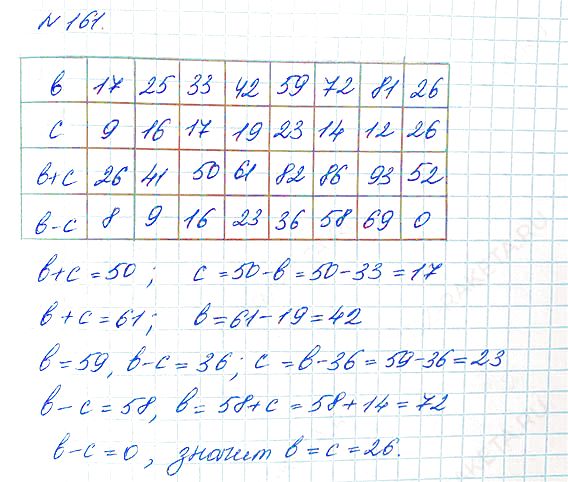 N 161.
в 17 25 33 42 59 72 81 26
с 9 16 17 19 23 14 12 26
в+с 26 41 50 61 82 86 93 52
в-с 8 9 16 23 36 58 69 0
в+с = 50 ; с = 50-в = 50-33 = 17
в + с = 61; в = 61-19 = 42
в = 59, в-с = 36; с = в-36 = 59-36 = 23
в-с = 58, в = 58+с = 58+14 = 72
в-с = 0, значит в = с = 26.